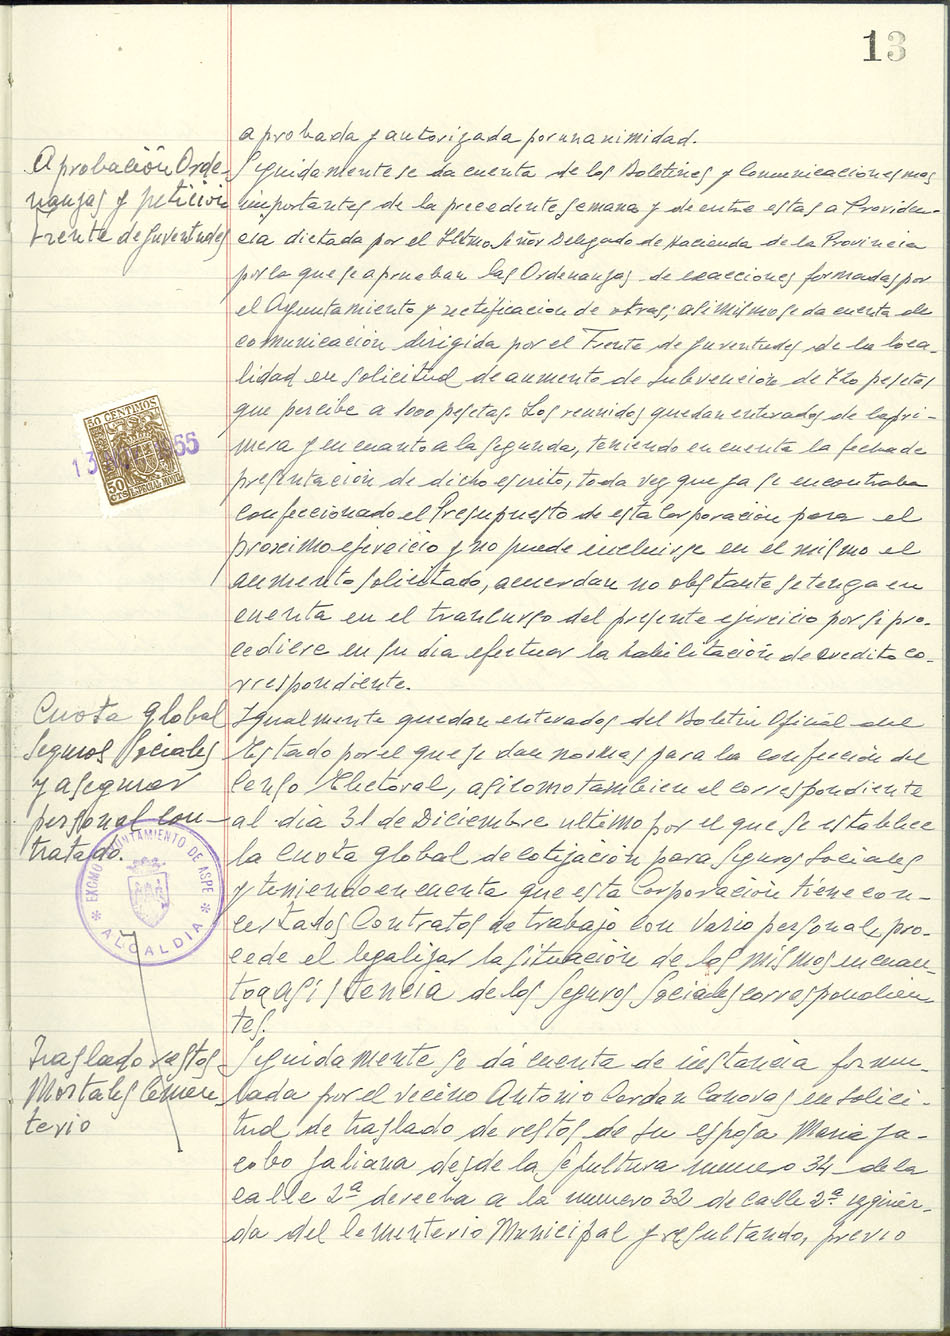 13
aprobada y autorizada por unanimidad.
Aprobación Orde-
nanzas y petición
Frente de Juventudes
Seguidamente se da cuenta de los Boletines y Comunicaciones mas
importantes de la precedente semana y de entre estas a Providen-
cia dictada por el Iltmo Señor Delegado de Hacienda de la Provincia
por la que se aprueban las Ordenanzas de exacciones formadas por
el Ayuntamiento y rectificacion de otras; asi mismo se da cuenta de
comunicación dirigida por el Frente de Juventudes de la loca-
lidad en solicitud de aumento de subvención de 720 pesetas
que percibe a 1000 pesetas. Los reunidos quedan enterados de la pri-
mera y en cuanto a la segunda, teniendo en cuenta la fecha de
presentación de dicho escrito, toda vez que ya se encontraba
confeccionado el Presupuesto de esta Corporación para el
proximo ejercicio y no puede incluirse en el mismo el
aumento solicitado, acuerdan no obstante se tenga en
cuenta en el trancurso del presente ejercicio por si pro-
cediere en su dia efectuar la habilitación de credito co-
rrespondiente.
50 CENTIMOS
50
CTS ESPECIAL MOVIL
13 1955
Cuota global
Seguros Sociales
y asegurar
personal con-
tratado.
Igualmente quedan enterados del Boletin Oficial del
Estado por el que se dan normas para la confección del
Censo Electoral, asi como tambien el correspondiente
al dia 31 de Diciembre ultimo por el que se establece
la cuota global de cotización para Seguros Sociales
y teniendo en cuenta que esta Corporación tiene con-
certados Contratos de trabajo con vario personal, pro-
cede el legalizar la situación de los mismos en cuan-
to a asistencia de los Seguros Sociales correspondien
tes.
EXCMO AYUNTAMIENTO DE ASPE
* ALCALDIA *
Traslado restos
Mortales Cemen-
terio
Seguidamente se dá cuenta de instancia formu-
lada por el vecino Antonio Cerdan Canovas en solici-
tud de traslado de restos de su esposa Maria Ja-
cobo Galiana desde la Sepultura numero 34 de la
calle 2ª derecha a la numero 32 de calle 2ª izquier-
da del Cementerio Municipal y resultando, previo